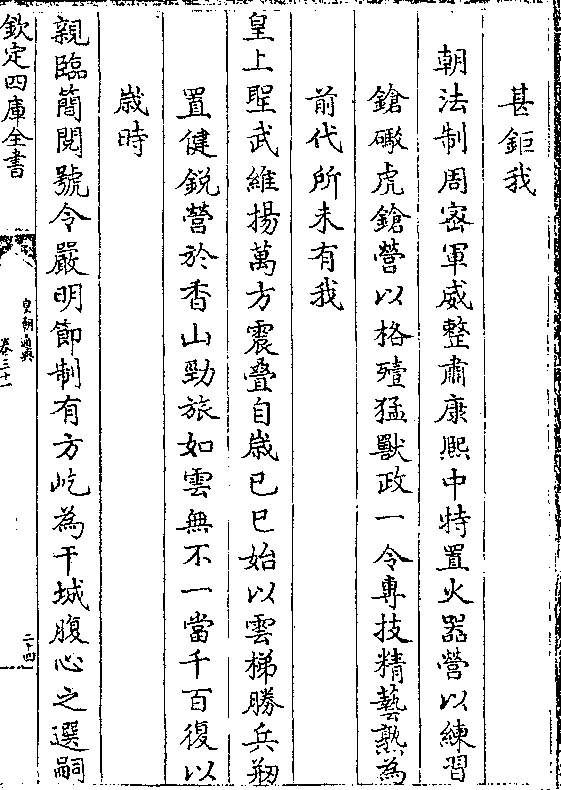 甚鉅我
朝法制周密軍威整肅康熙中特置火器營以練習
鎗礮虎鎗營以格殪猛獸政一令專技精藝熟為
前代所未有我
皇上聖武維揚萬方震疊自歲已巳始以雲梯勝兵剏
置健鋭營於香山勁旅如雲無不一當千百復以
歲時
親臨簡閱號令嚴明節制有方屹為干城腹心之選嗣
欽定四庫全書
皇朝通典
卷三十一
二十四